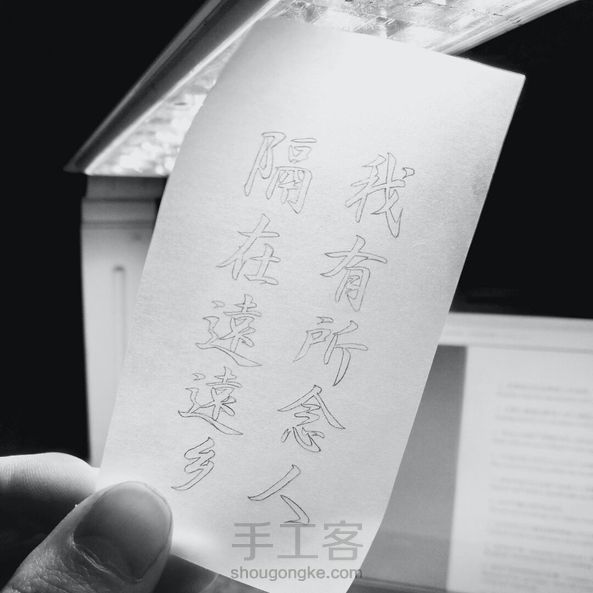 我有所念人
隔在遠遠乡
手工客
shougongke.com